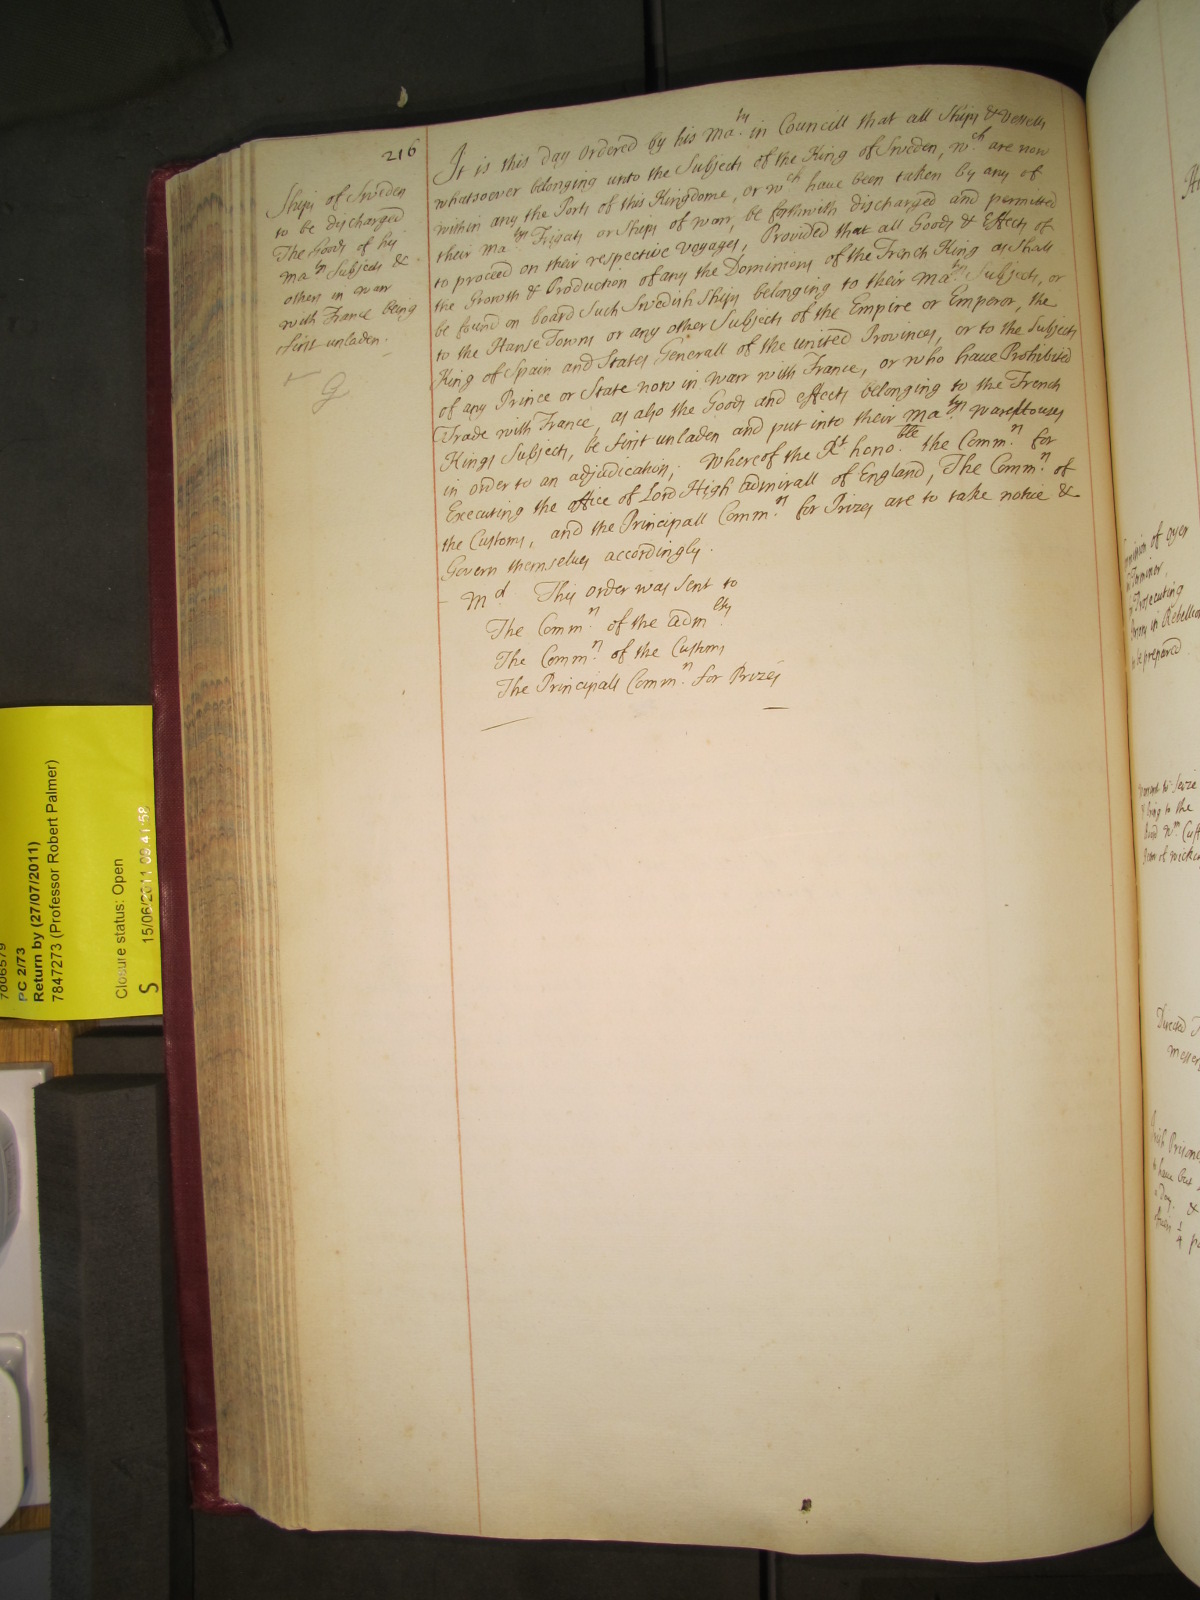 216
Ships of Sweden
to be discharged
The Goods of his
Ma.tys Subjects &
others in warr
with France being
first unladen.
It is this day ordered by his Ma.ty in Councill that all Ships & Vessells
whatsoever belonging unto the Subjects of the King of Sweden, w.ch are now
within any the Ports of this Kingdome, or w.ch have been taken by any of
their Ma.tys Frigats or Ships of warr, be forthwith discharged and permitted
to proceed on their respective voyages, Provided that all Goods & Effects of
the Growth & Production of any the Dominions of the French King as shall
be found on board such Swedish Ships belonging to their Ma.tys Subjects, or
to the Hanse Towns or any other Subjects of the Empire or Emperor, the
King of Spain and States Generall of the united Provinces, or to the Subjects
of any Prince or State now in warr with France, or who have Prohibited
Trade with France, as also the Goods and effects belonging to the French
Kings Subjects, be first unladen and put into their Ma.tys warehouses
in order to an adjudication; Whereof the R.t hono.ble the Comm.rs for
Executing the office of Lord High Admirall of England, The Comm.rs of
the Customs, and the Principall Comm.rs for Prizes are to take notice &
Govern themselves accordingly.
M.d This order was sent to
The Comm.rs of the Adm.lty
The Comm.rs of the Customs
The Principall Comm.rs for Prizes
Terminer,
Prosecuting
in Rebellion
to be prepared
to the
PC 2/73
Return by (27/07/2011)
7847273 (Professor Robert Palmer)
Closure status: Open
S 15/06/2011 09:41:58